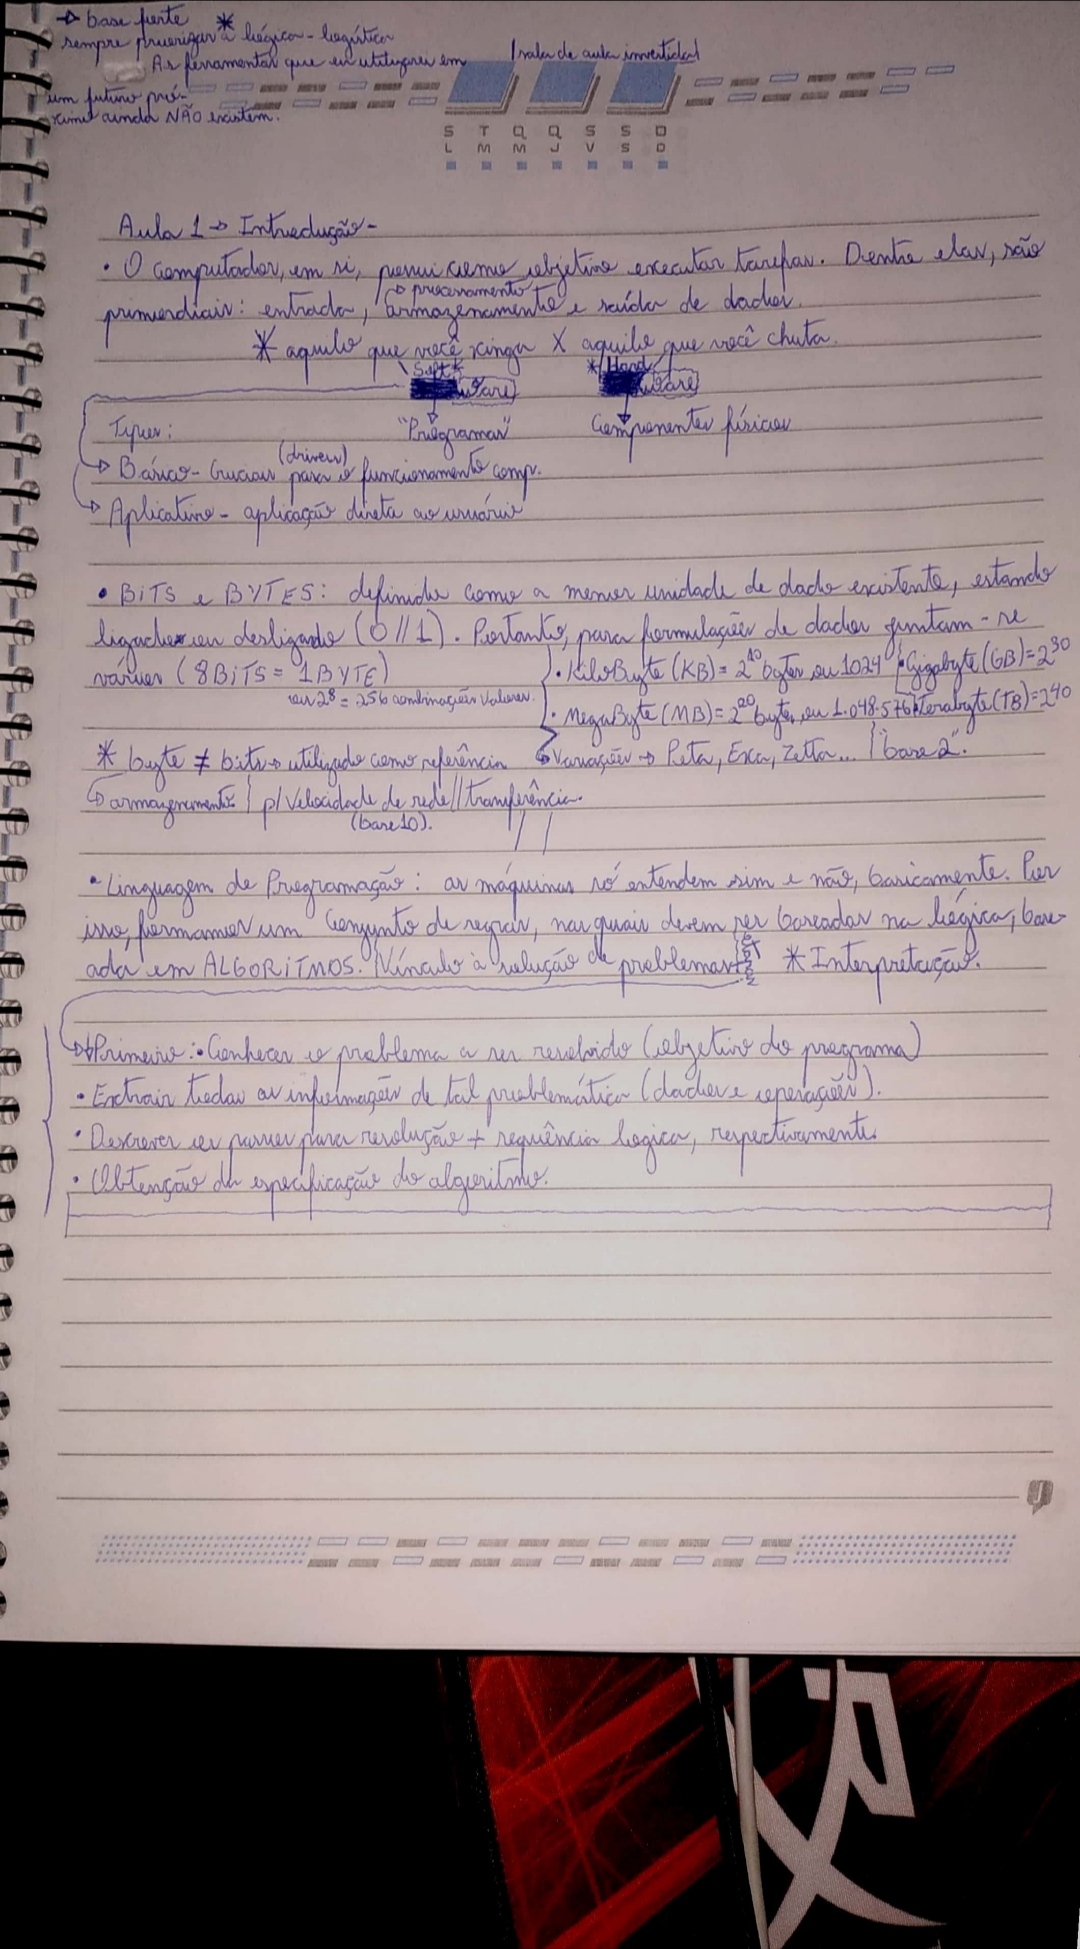 → base forte
sempre priorizar * à lógica - logística
As ferramentas que eu utilizarei em
um futuro pró-
ximo ainda NÃO existem.
|sala de aula invertida|
S T Q Q S S D
L M M J V S D
Aula 1 → Introdução -
• O computador, em si, possui como objetivo executar tarefas. Dentre elas, são
→ processamento
primordiais: entrada, armazenamento e saída de dados.
* aquilo que você xinga X aquilo que você chuta.
Soft* *Hard
ware ware
Types: "Programas" Componentes físicos
(drivers)
→ Básico - Cruciais para o funcionamento comp.
→ Aplicativo - aplicação direta ao usuário
• BiTS e BYTES: definido como a menor unidade de dado existente, estando
ligado ou desligado (0//1). Portanto, para formulações de dados juntam-se
vários (8BiTS = 1BYTE) • KiloByte (KB) = 2¹⁰ bytes ou 1024 • Gigabyte (GB) = 2³⁰
ou 2⁸ = 256 combinações valores. • MegaByte (MB) = 2²⁰ bytes ou 1.048.576 • terabyte (TB) = 2⁴⁰
* byte ≠ bits → utilizado como referência → Variações → Peta, Exa, Zetta... | "base 2".
→ armazenamento | p/ Velocidade de rede//transferência.
(base 10).
• Linguagem de Programação: as máquinas só entendem sim e não, basicamente. Por
isso, formamos um conjunto de regras, nas quais devem ser baseadas na lógica, base-
ada em ALGORiTMOS. Vínculo à solução de problemas * Interpretação.
→ Primeiro: • Conhecer o problema a ser resolvido (objetivo do programa)
• Extrair todas as informações de tal problemática (dados e operações).
• Descrever os passos para resolução + sequência lógica, respectivamente.
• Obtenção da especificação do algoritmo.